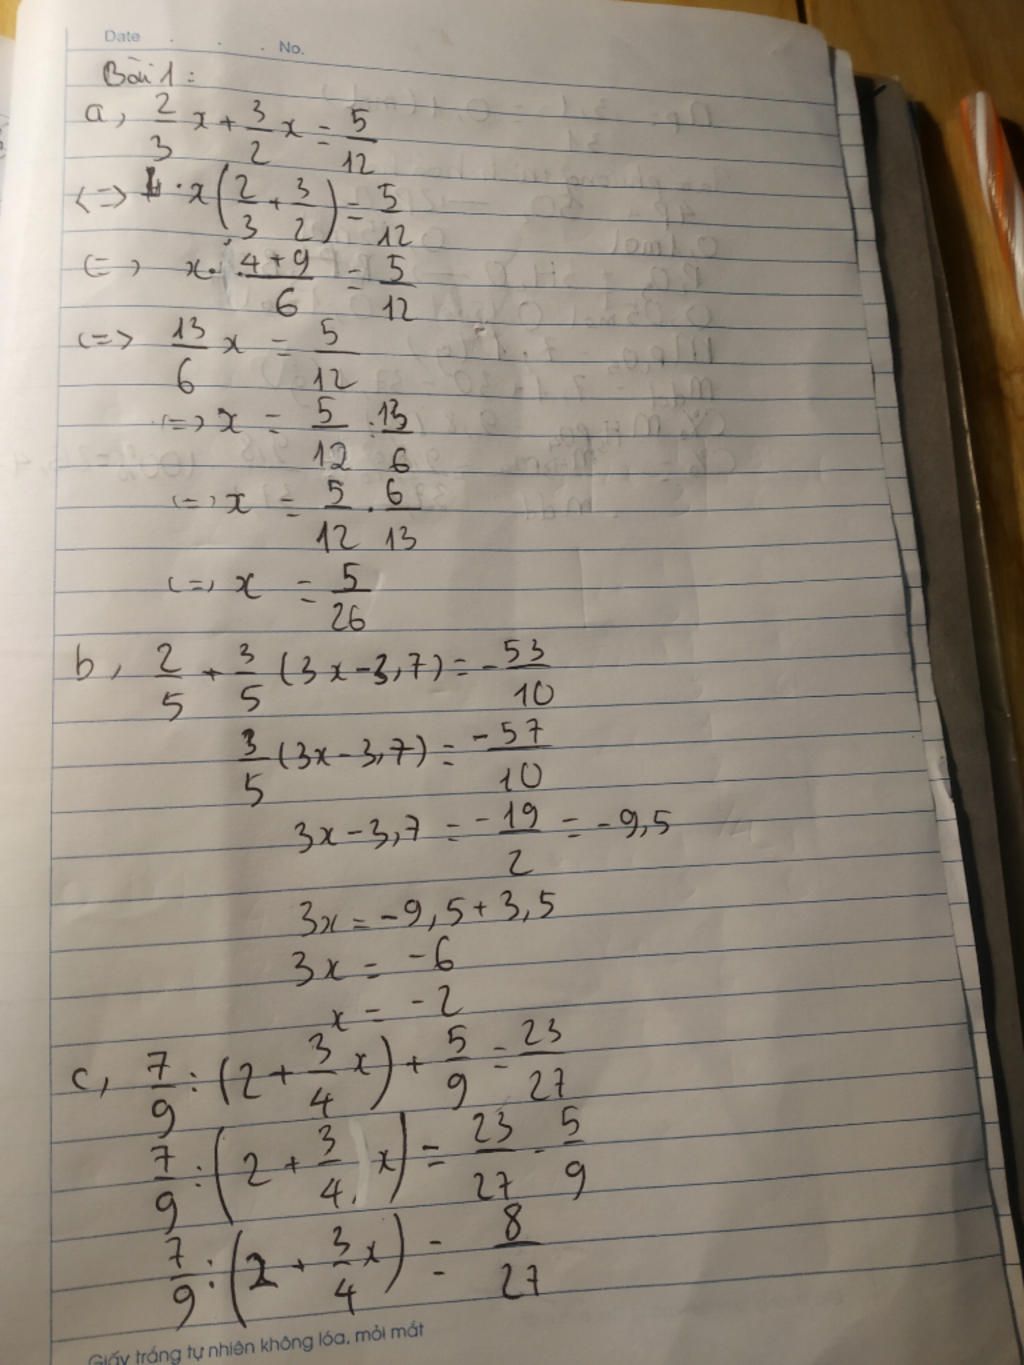 Date . . . No.
Bài 1:
a, 2/3 x + 3/2 x = 5/12
<=> x(2/3 + 3/2) = 5/12
<=> x. 4+9/6 = 5/12
<=> 13/6 x = 5/12
<=> x = 5/12 : 13/6
<=> x = 5/12 . 6/13
<=> x = 5/26
b, 2/5 + 3/5 (3x-3,7) = -53/10
3/5 (3x-3,7) = -57/10
3x-3,7 = -19/2 = -9,5
3x = -9,5+3,5
3x = -6
x = -2
c, 7/9 : (2 + 3/4 x) + 5/9 = 23/27
7/9 : (2 + 3/4 x) = 23/27 - 5/9
7/9 : (2 + 3/4 x) = 8/27
Giấy trắng tự nhiên không lóa, mỏi mắt